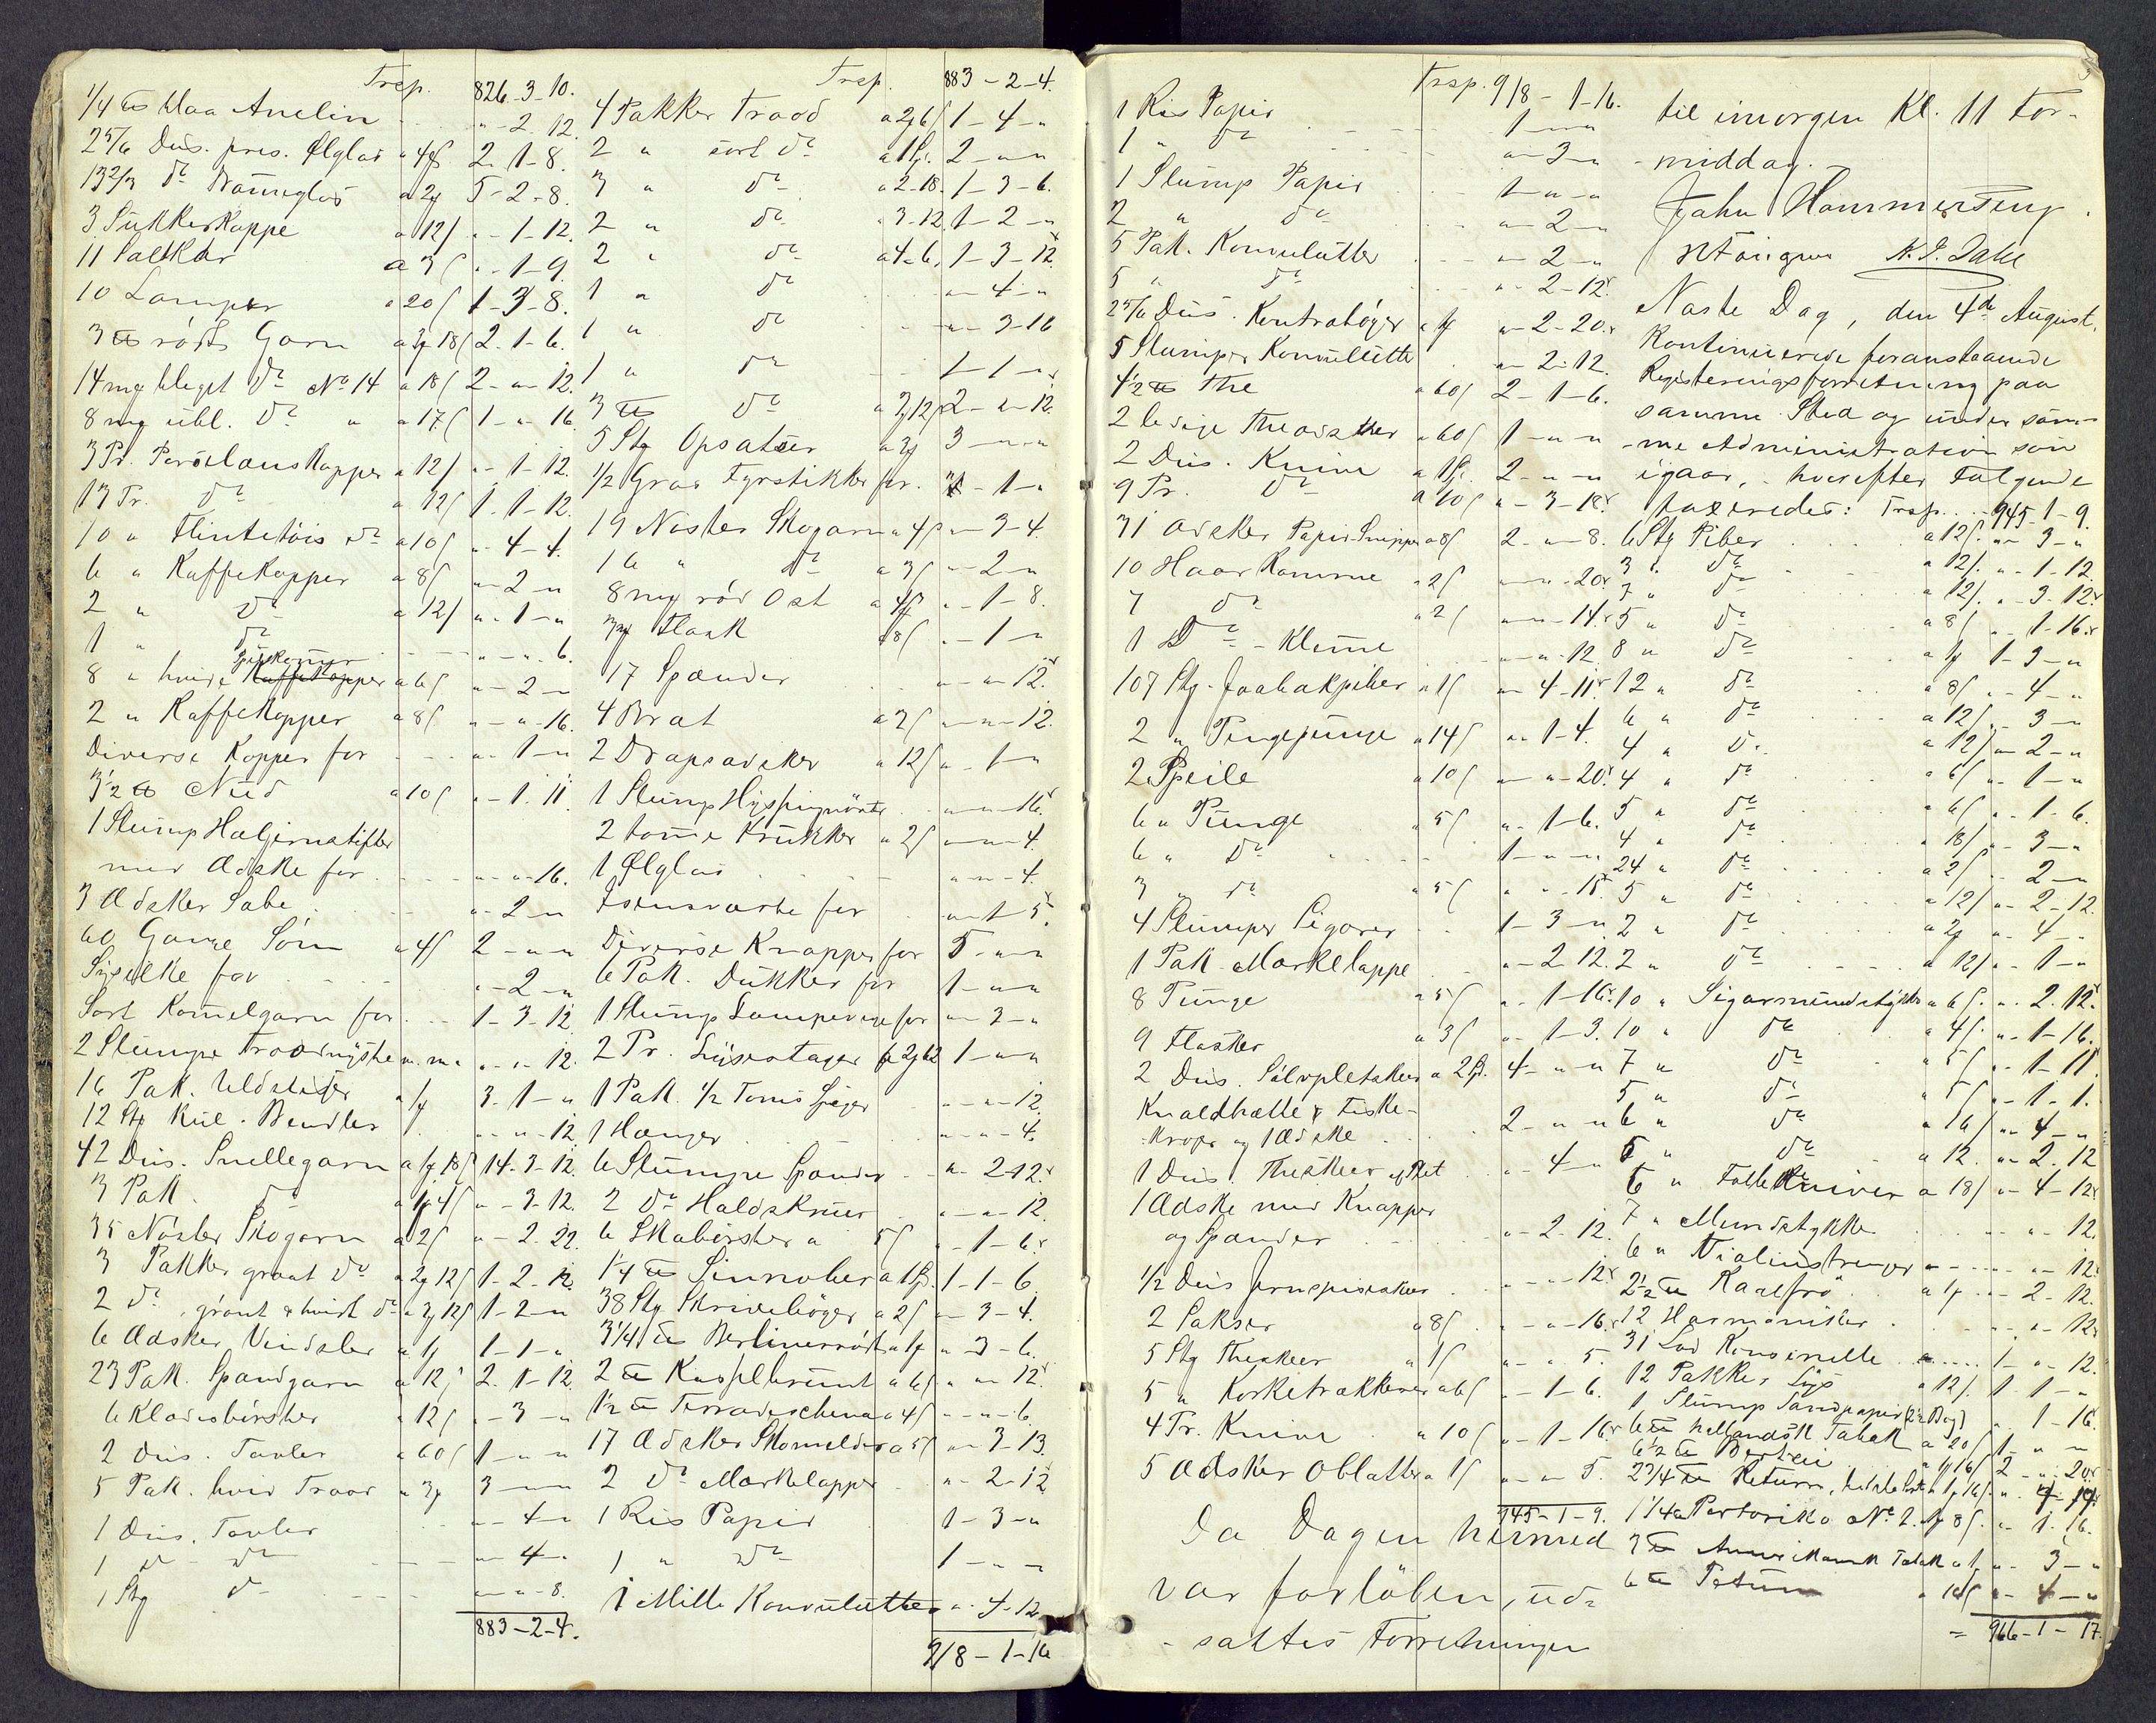 Trsp. 826-3-10.
1/4 ℔ blaa Anelin " - 2. 12.
2 5/6 Dus. pres. Ølglas a 4 2- 1-8.
13 2/3 do Vannglas a 2 5-2-8.
3 Sukkerkoppe a 12 " - 1-12.
11 Saltkar a 3 " - 1-9.
10 Lamper a 20 1-3-8.
3 ℔ rödt Garn a 3 18 2. 1-6.
14 mg bleget do No 14 a 18 2-"-12.
8 mg ubl. do " a 17 1-"-16.
3 Pr. Porcelanskopper a 12 "-1-12.
13 Pr. do a 12 1. 1-12.
10 " Flintetöis do a 10 "-4-4.
6 " Kaffekopper a 8 "-2-"
2 " do a 12 "-1-"
1 " do "-"-6.
8 " hvide Kaffekopper a 6 "-2-"
2 " Kaffekopper a 8 "-"-16.
Diverse Kopper for "-1-"
3 1/2 ℔ a 10 "-1.11.
1 Slump
med Ædske for "-"-16.
3 Ædsker Sæbe "-2-"
60 Gange Söm a 4 2-"-"
Sysilke for "-2-"
Sort Kamelgarn for 1-3-12.
2 Slumpe m.m. "-"-12.
16 Pak. Uldstifter 3. 1-"
12 Stg Kul. Bendler "-"-12.
42 Dus. Snellegarn a 1 18 14-3-12.
3 Pak. do a 1 4 "-3-12.
35 Nöster Skogarn a 2 "-2-22.
3 Pakker graat do a 2 12 1-2-12.
2 do grönt & hvidt do a 3 12 1-2-"
6 Ædsker Vindsler a 1 1-1-"
23 Pak. Spandgarn a 12 2. 1-12.
6 Klædesbörster a 12 "-3-"
2 Dus. Tavler a 60 1-"-"
5 Pak. hvid Traad a 3 3-"-"
1 Dus. Tavler "-4-"
1 do do "-4-"
1 Stg do "-"-8.
883-2-4.
Trsp. 883-2-4.
4 Pakker Traad a 2 6 1-4-"
2 " sort do a 1 2-"-"
3 " do a 2-18. 1-3-6.
2 " do a 3-12. 1-2-"
2 " do a 4-6. 1-3-12.
1 " do "-4-"
1 " do "-3-16
1 " do 1-1-"
3 ℔ do a 3 12 2-"-12.
5 Stg Opsatser a 3 3-"-"
1/2 Gros Fyrstikker for. "-1-"
19 Nöster Skogarn a 4 "-3-4.
16 " do a 3 "-2-"
8 mg röd Ost a 4 "-1-8.
3 mg Flask a 8 "-1-"
17 Spænder "-"-12.
4 Brat a 3 "-"-12.
2 Drapsædsker a 12 "-1-"
1 Slump "-"-16.
2 tomme Krukker a 2 "-"-4.
1 Ølglas "-"-4.
for "-1-5.
Diverse Knapper for 5-"-"
6 Pak. Dukker for 1-"-"
1 Slump Lampevæge for "-3-"
2 Pr. Lysestager 1-"-"
1 Pak. 1/2 Toms Spiger "-"-12.
1 Hænger "-"-4.
6 Slumpe Spænder "-2-12.
2 do Haldskruer "-"-12.
6 Skobörster a 5 "-1-6.
1/4 ℔ Sinnober a 1 1-1-6
38 Stg Skrivebøger a 2 "-3-4.
3 1/4 ℔ Berlinerrödt a 1 "-3-6.
2 ℔ a 6 "-"-12.
1 1/2 ℔ Terradeschena a 4 "-"-6.
17 Ædsker a 5 "-3-13.
2 do Mærkelapper "-2-12.
1 Ris Papir 1-3-"
1 " do 1-"-"
1 Mille Konvulutter "-4-12.
918-1-16
Trsp. 918-1-16.
1 Ris Papir 1-"-"
1 " do "-3-"
1 Slump Papir 1-"-"
2 " do "-2-"
5 Pak. Konvulutter "-2-"
5 " do "-2-12.
2 5/6 Dus. Kontrabøger a 1 "-2-20.
5 Slumper Konvulutter "-2-12.
4 1/2 ℔ The a 60 2-1-6.
2 ledige Theædsker a 60 1-"-"
2 Dus. Knive a 1 2-"-"
9 Pr. do a 10 "-3-18.
31 Ædsker Papir-Snipper a 8 2-"-8.
10 Haarkamme a 2 "-"-20.
7 do a 2 "-"-14.
1 do-Klemme "-"-12
107 Stg. a 1 "-4-11.
2 " Pengepunge a 14 "-1-4.
2 Speile a 10 "-"-20.
6 " Punge a 5 "-1-6.
6 " do 1-"-"
3 " do a 5 "-"-15.
4 Slumper Sigarer 1-3-"
1 Pak Mærkelappe "-2-12.
8 Punge a 5 "-1-16.
9 Flasker a 3 "-1-3.
2 Dus. Sölvpletskeer a 2 4-"-"
Knaldhætte & Fiske-
-kroge og 1 Ædske 2-"-"
1 Dus. Theskeer af Plet "-4-"
1 Ædske med Knapper
og Spænder "-2-12.
1/2 Dus Jernspiseskeer "-"-12.
2 Sakser a 8 "-"-16.
5 Stg Theskeer a 1 "-"-5.
5 " Korketrækkere a 6 "-1-6.
4 Pr. Knive a 10 "-1-16.
5 Ædsker Oblatter a 1 "-"-5.
945-1-9.
Da Dagen hermed
var forløben, ud-
-sattes Forretningen
til imorgen Kl. 11 For-
-middag.-
John Hammerseng.
Næste Dag, den 4de August,
kontinuerede foranstaaende
Registeringsforretning paa
samme Sted og under sam-
-me Administration som
igaar, - hvorefter Følgende
taxeredes: Trsp. 945-1-9.
6 Stg Piber a 12 "-3-"
3 " do a 12 "-1-12.
7 " do a 12 "-3-12.
5 " do a 8 "-1-16.
8 " do a 1 1-3-"
12 " do a 8 "-4-"
6 " do a 12 "-3-"
4 " do a 12 "-2-"
4 " do a 6 "-1-"
5 " do a 6 "-1-6.
4 " do a 18 "-3-"
24 " do a 2 "-2-"
5 " do a 12 "-2-12.
2 " do a 2 "-4-"
2 " do a 12 "-1-"
10 " Sigarmundstykker a 6 "-2.12.
10 " do a 4 "-1-16.
7 " do a 5 "-1-11.
5 " do a 5 "-1-1.
6 " do a 16 "-4-"
5 " do a 12. "-2.12
6 " Follekniver a 18 "-4-12
7 " Mundstykke "-"-12.
6 " Violinstrenger "-"-12.
2 1/2 ℔ Kaalfrö a 1 "-2-12.
12 Harmonikker "-"-12.
31 Lod Konsenelle 1-"-12.
12 Pakker Lys a 12 1. 1-"
1 Slump Sandpapir (2 1/2 Bog) "-1-16.
6 ℔ hollandsk Tabak a 20 1-"-"
6 1/2 ℔ a 1 16 2-"-20.
2 3/4 ℔ a 1 16
1 1/4 ℔ Portoriko No 2. a 1 8 "-1-16.
3 ℔ Amerikansk Tabak a 1 "-3-"
6 ℔ Petum a 16 "-4-"
= 966-1-17.